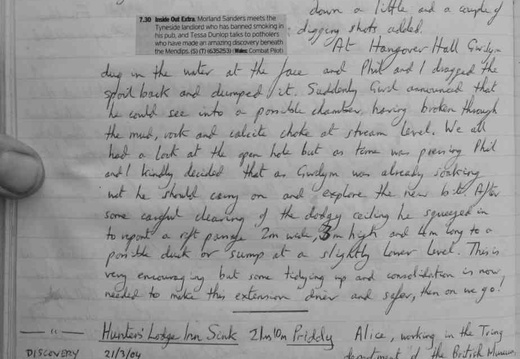 down a little and a couple of
7.30 Inside Out Extra. Morland Sanders meets the
Tyneside landlord who has banned smoking in
his pub, and Tessa Dunlop talks to potholers
who have made an amazing discovery beneath
the Mendips. (S) (T) (6352531) (Wales: Combat Pilot)
digging shots added.
At Hangover Hall Gwilym
dug in the water at the face and Phil and I dragged the
spoil back and dumped it. Suddenly Gwil announced that
he could see into a possible chamber, having broken through
the mud, rock and calcite choke at stream level. We all
had a look at the open hole but as time was pressing Phil
and I kindly decided that as Gwilym was already soaking
wet he should carry on and explore the new bit. After
some careful clearing of the dodgy ceiling he squeezed in
to report a rift passage 2m wide, 3m high and 4m long to a
possible duck or sump at a slightly lower level. This is
very encouraging but some tidying up and consolidation is now
needed to make this extension drier and safer, then on we go!
Hunters' Lodge Inn Sink 2hrs 10m Priddy Alice, working in the Tring
DISCOVERY 21/3/04 department of the British Museum